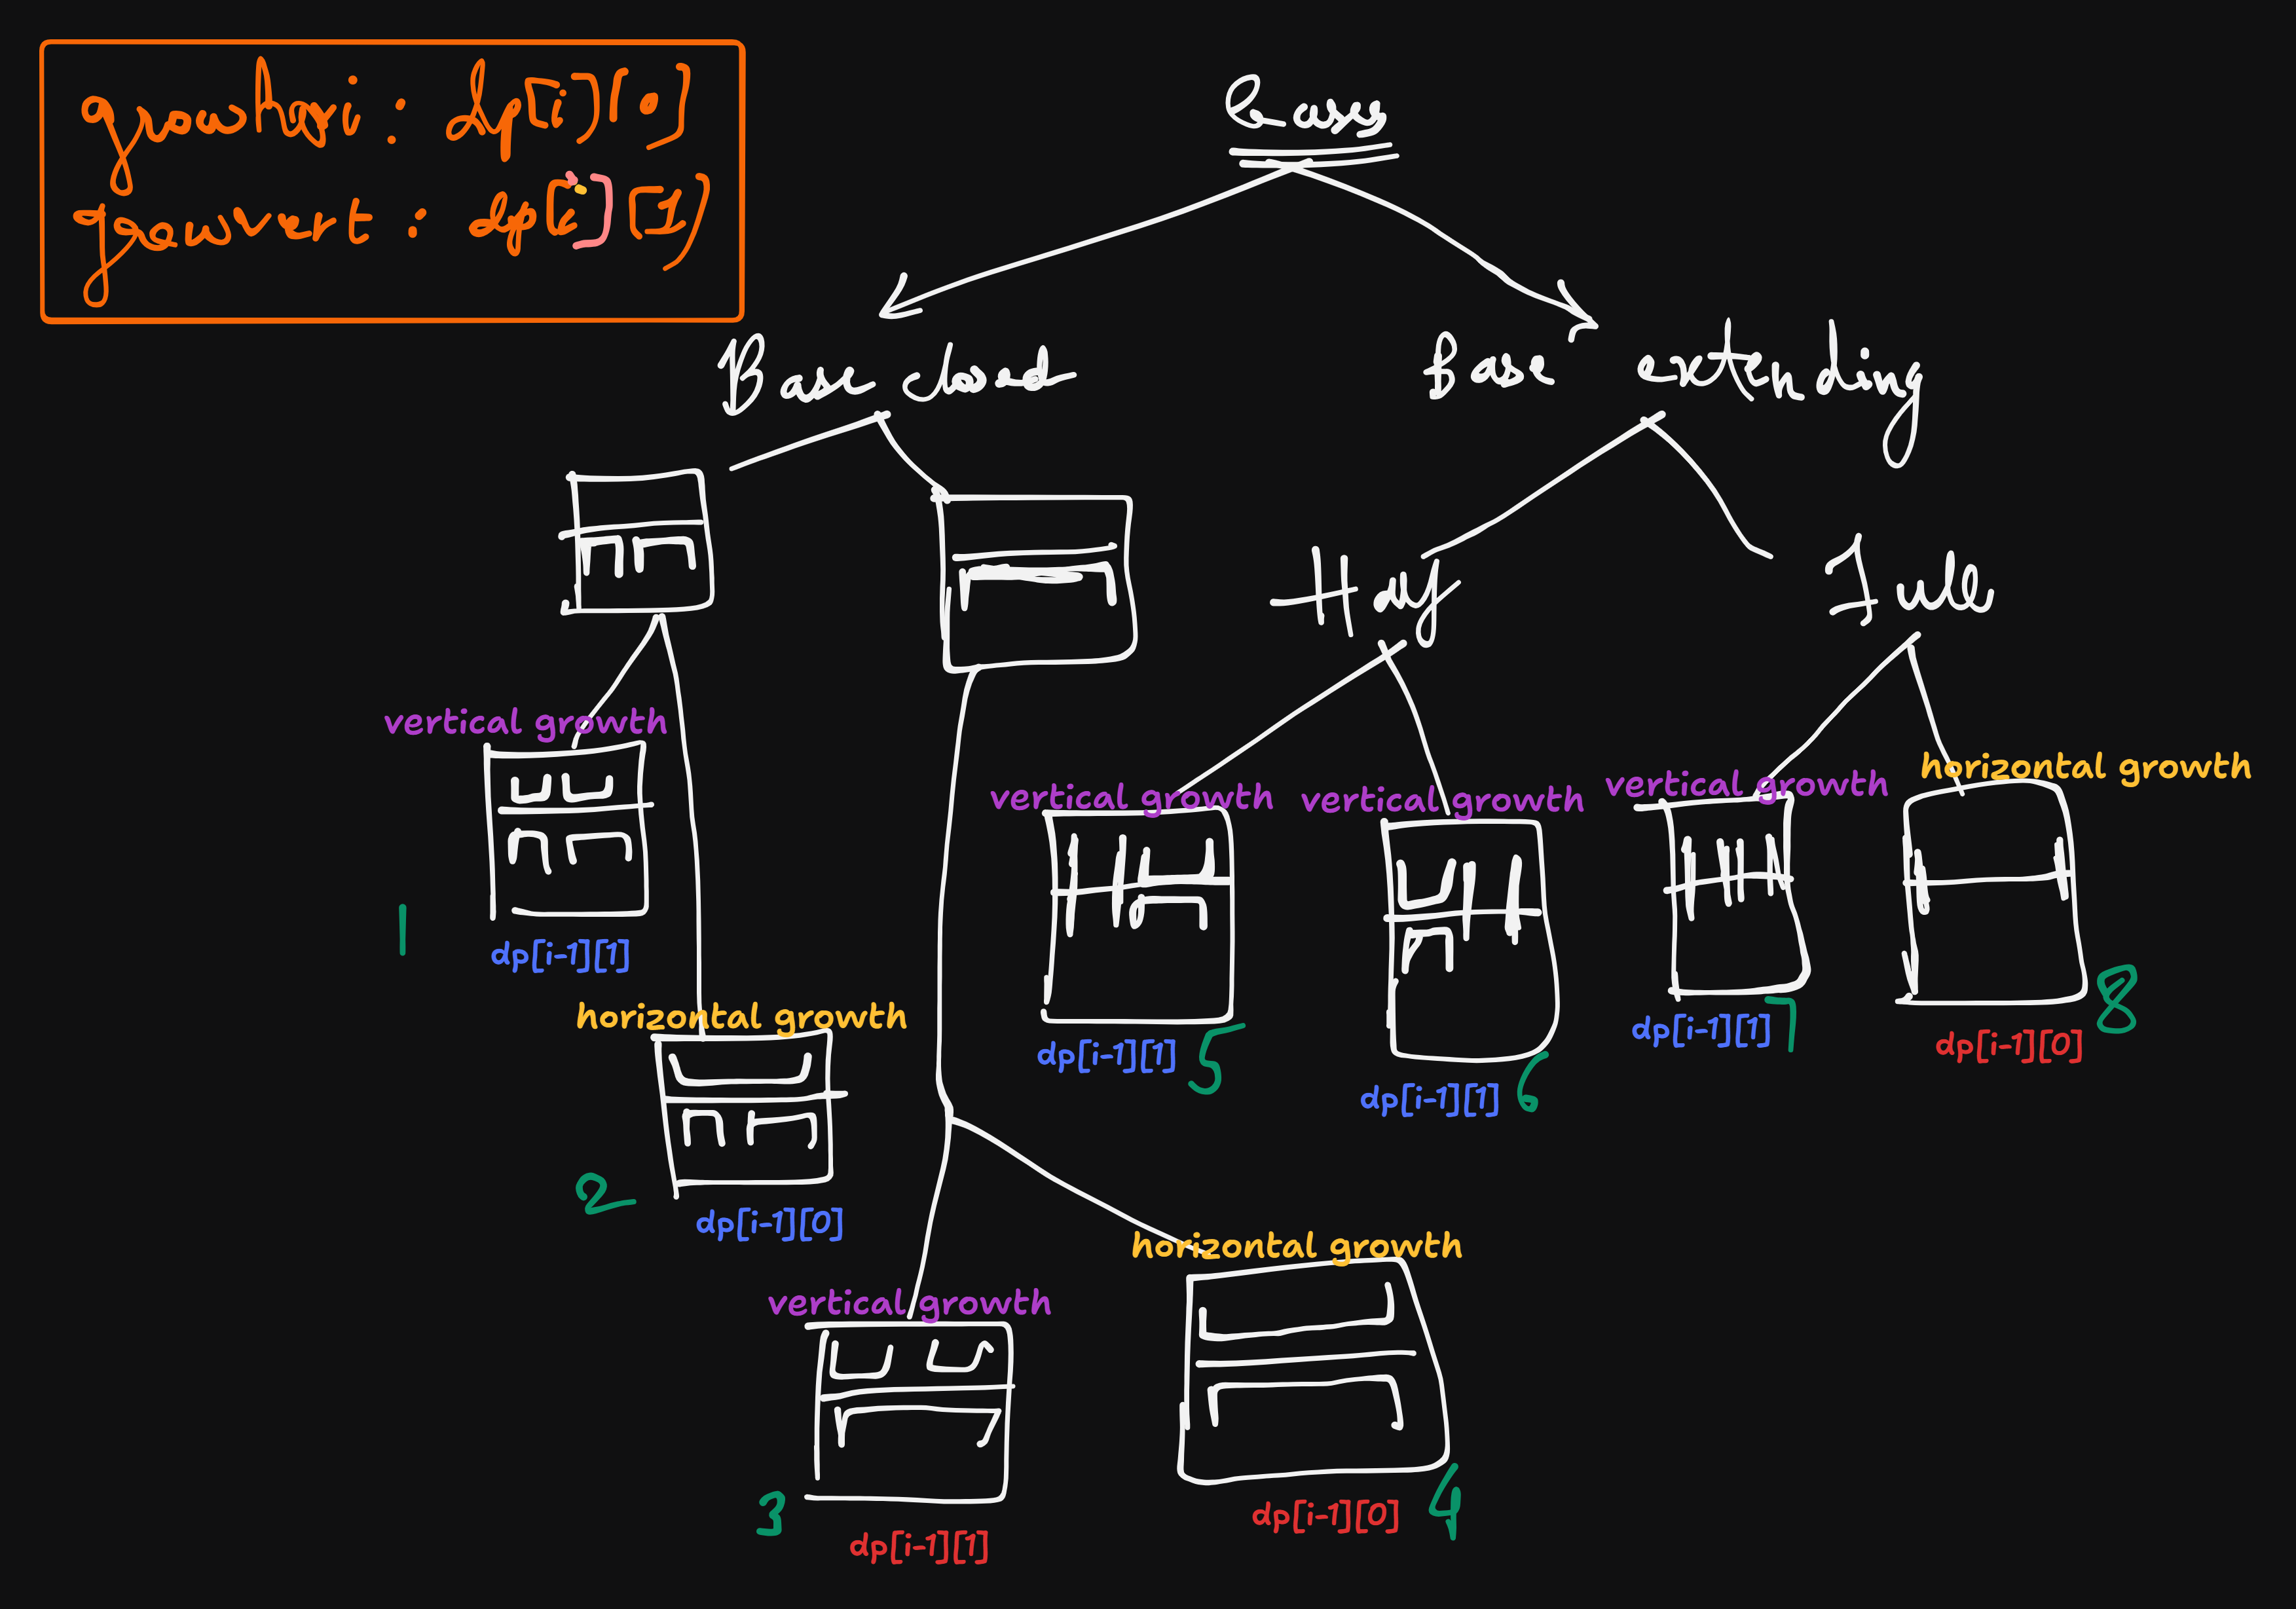 growhori : dp[i][0]
growvert : dp[i][1]
Cases
Base closed
Base extending
Half
Full
vertical growth
dp[i-1][1]
1
horizontal growth
dp[i-1][0]
2
vertical growth
dp[i-1][1]
3
horizontal growth
dp[i-1][0]
4
vertical growth
dp[i-1][1]
5
vertical growth
dp[i-1][1]
6
vertical growth
dp[i-1][1]
7
horizontal growth
dp[i-1][0]
8